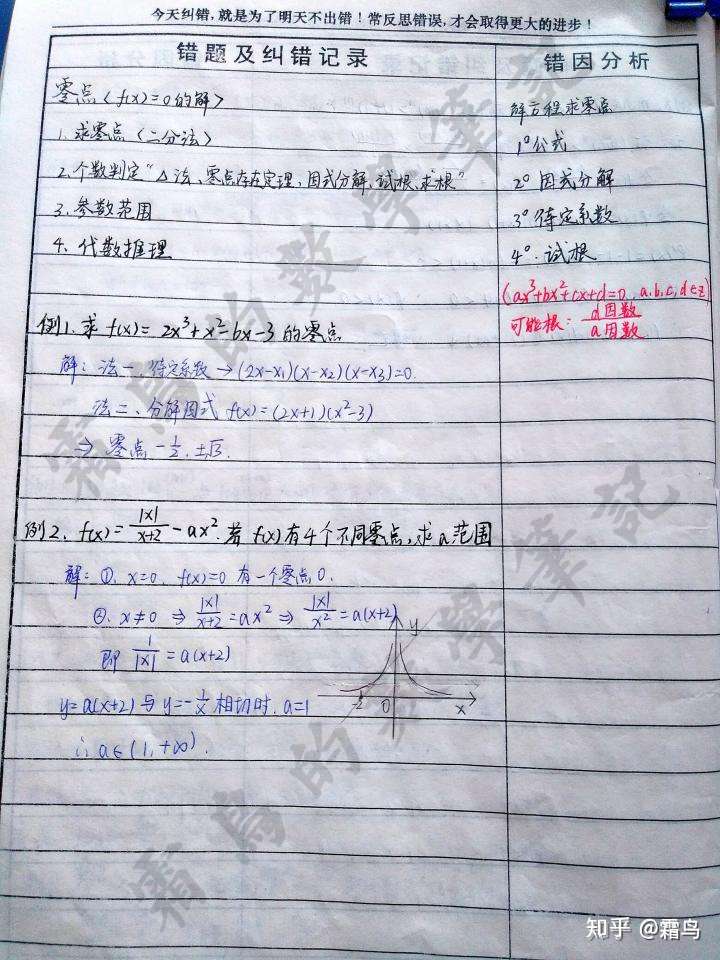 今天纠错，就是为了明天不出错！常反思错误，才会取得更大的进步！
错题及纠错记录
错因分析
零点〈f(x)=0的解〉
1. 求零点〈二分法〉
2. 个数判定“△法、零点存在定理、因式分解、试根、求根”
3. 参数范围
4. 代数推理
解方程求零点
1° 公式
2° 因式分解
3° 待定系数
4° 试根
(ax³+bx²+cx+d=0, a.b.c,d∈Z)
可能根: d因数/a因数
例1. 求 f(x)= 2x³+x²-6x-3 的零点
解: 法一、待定系数 → (2x-x₁)(x-x₂)(x-x₃)=0.
法二、分解因式 f(x)=(2x+1)(x²-3)
⇒ 零点 -1/2, ±√3.
例2. f(x)= |x|/(x+2) - ax². 若 f(x)有4个不同零点,求a范围
解: ①. x=0, f(x)=0 有一个零点0.
②. x≠0 ⇒ |x|/(x+2) = ax² ⇒ |x|/x² = a(x+2)
即 1/|x| = a(x+2)
y=a(x+2) 与 y=-1/x 相切时. a=1
∴ a∈(1,+∞).
y
-2 0 x
霜鳥的數學筆記
霜鳥的數學筆記
知乎 @霜鸟